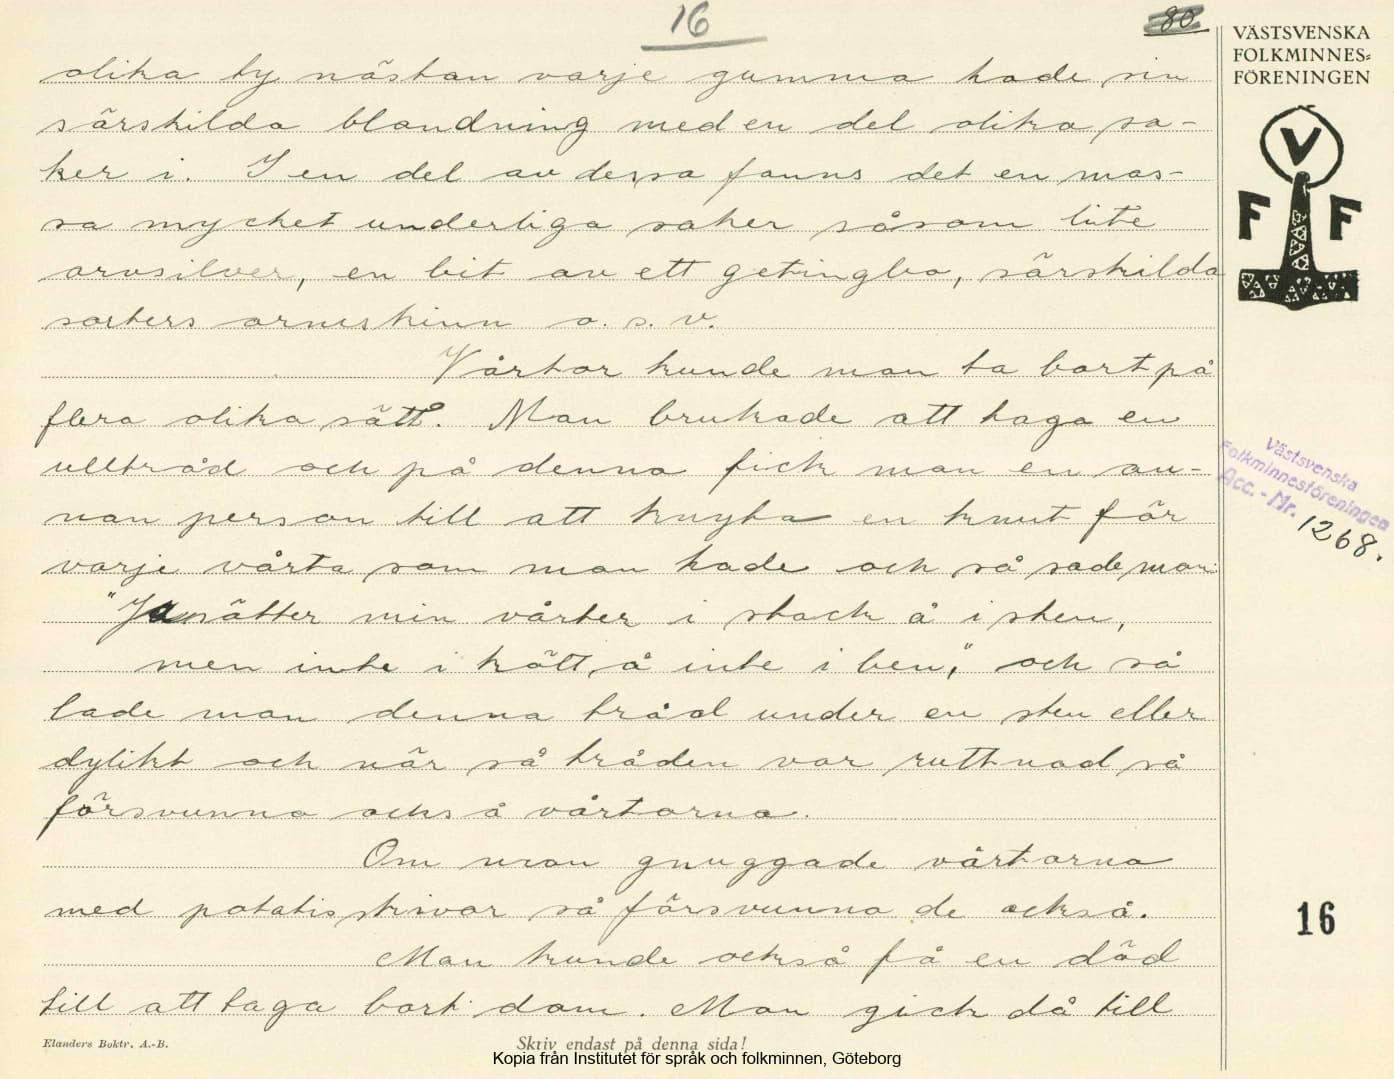 16
80
VÄSTSVENSKA
FOLKMINNES=
FÖRENINGEN
V
F F
olika ty nästan varje gumma hade sin
särskilda blandning med en del olika sa-
ker i. I en del av dessa fanns det en mas-
sa mycket underliga saker såsom lite
arvsilver, en bit av ett getingbo, särskilda
sorters ormskinn o. s. v.
Vårtor kunde man ta bort på
flera olika sätt. Man brukade att taga en
ulltråd och på denna fick man en an-
nan person till att knyta en knut för
varje vårta som man hade och så sade man:
"Ja sätter min vårter i stock å i sten,
men inte i kött å inte i ben," och så
lade man denna tråd under en sten eller
dylikt och när så tråden var ruttnad så
försvunno också vårtorna.
Om man gnuggade vårtorna
med potatisskivor så försvunno de också.
Man kunde också få en död
till att taga bort dom. Man gick då till
Västsvenska
Folkminnesföreningen
Acc.-Nr. 1268.
16
Elanders Boktr. A.-B.
Skriv endast på denna sida!
Kopia från Institutet för språk och folkminnen, Göteborg